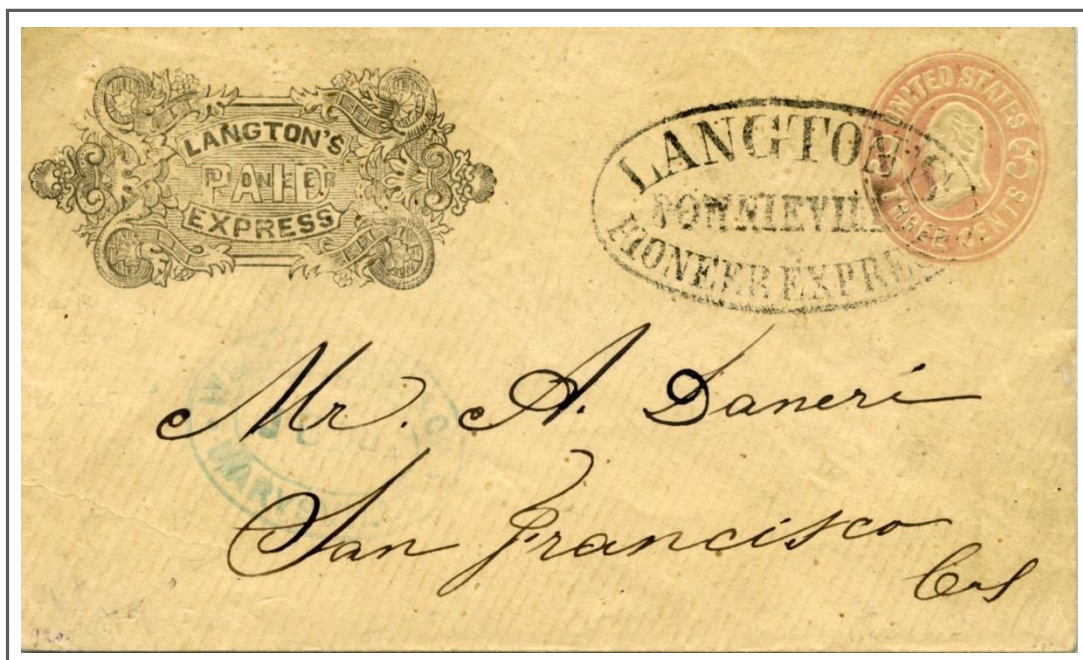 LANGTON'S
PIONEER
PAID
EXPRESS
LANGTON'S
DOWNIEVILLE
PIONEER EXPRESS
UNITED STATES
THREE CENTS
3 3
Mr. A. Daneri
San Francisco
Cal
920.